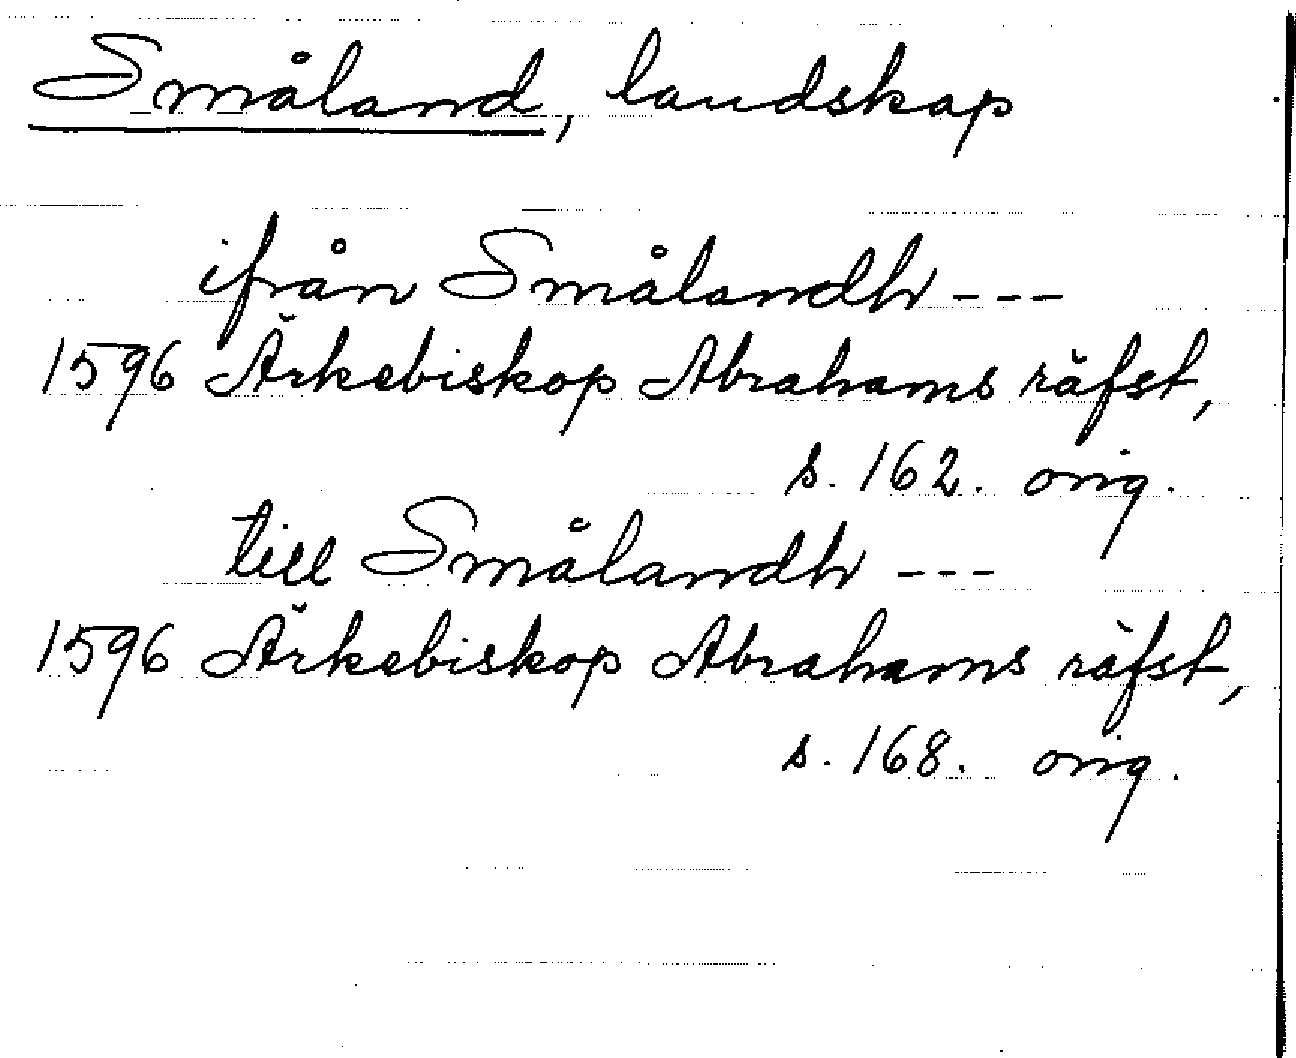 Småland, landskap
ifrån Smålandh ---
1596 Ärkebiskop Abrahams räfst,
s. 162. orig.
till Smålandh ---
1596 Ärkebiskop Abrahams räfst,
s. 168. orig.